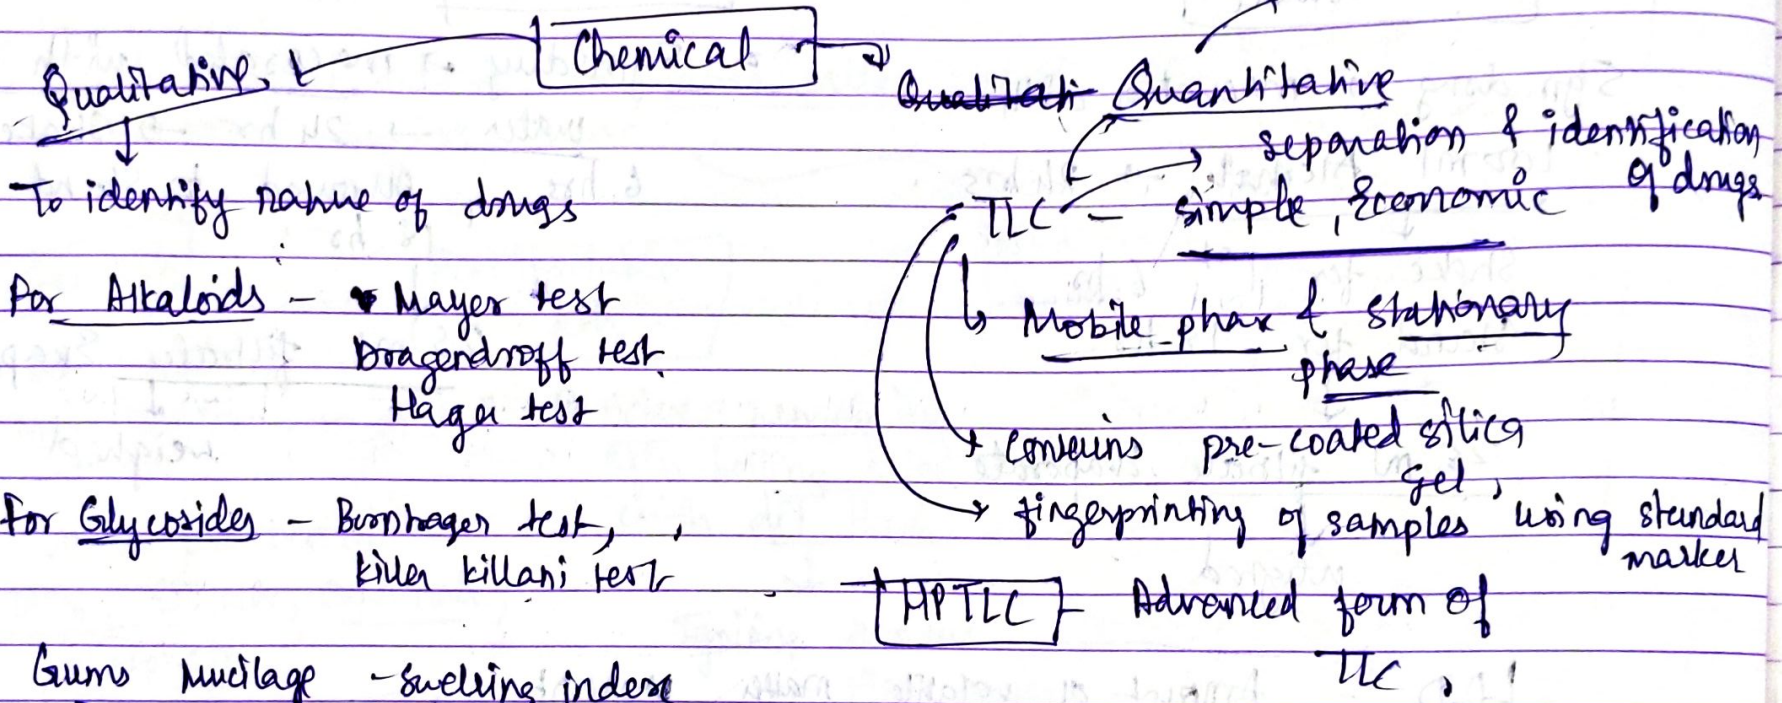 Chemical
Qualitative
To identify nature of drugs
For Alkaloids - Mayer test
Dragendroff test.
Hager test
For Glycosides - Borntrager test, ,
killer killani test
Gums Mucilage - Swelling index
Qualitati Quantitative
separation & identification
of drugs
TLC - simple, Economic
Mobile phase & stationary
phase
contains pre-coated silica
gel,
fingerprinting of samples using standard
marker
HPTLC - Advanced form of
TLC,